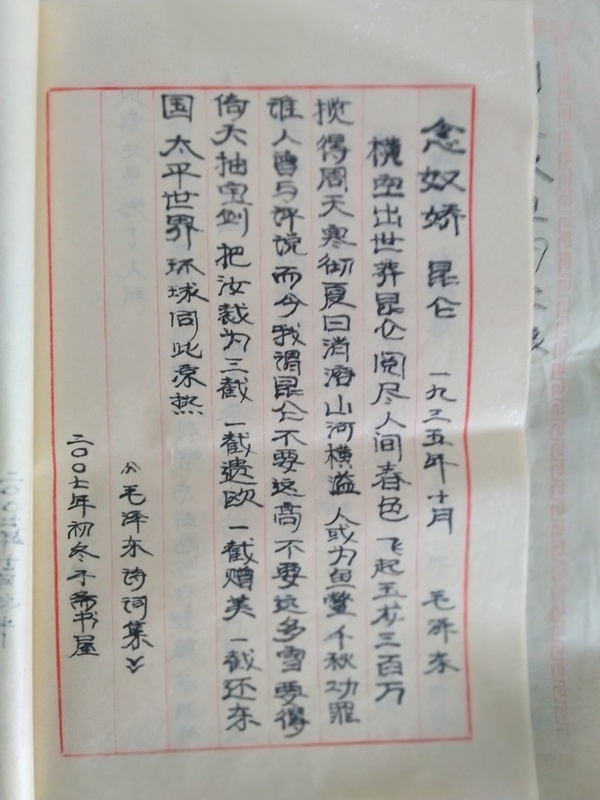 念奴娇 昆仑 一九三五年十月 毛泽东
横空出世莽昆仑阅尽人间春色 飞起玉龙三百万
搅得周天寒彻夏日消溶山河横溢 人或为鱼鳖千秋功罪
谁人曾与评说 而今我谓昆仑不要这高 不要这多雪 要得
倚天抽宝剑 把汝裁为三截 一截遗欧 一截赠美 一截还东
国 太平世界 环球同此凉热
《毛泽东诗词集》
二〇〇七年初冬于斋书屋